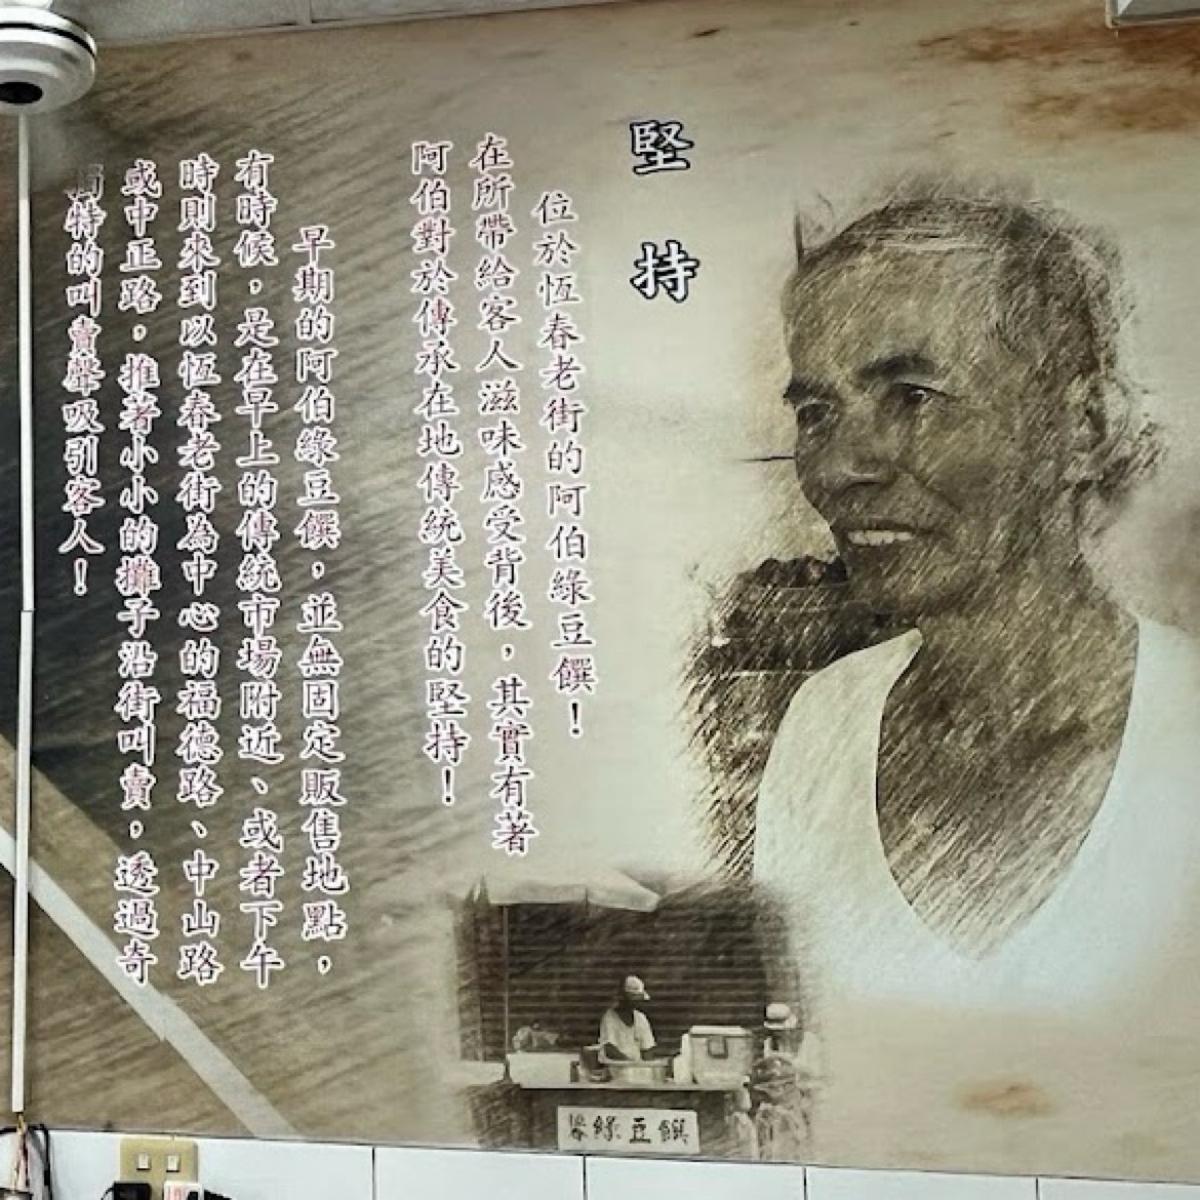 堅持
位於恆春老街的阿伯綠豆饌！
在所帶給客人滋味感受背後，其實有著
阿伯對於傳承在地傳統美食的堅持！
早期的阿伯綠豆饌，並無固定販售地點，
有時候，是在早上的傳統市場附近、或者下午
時則來到以恆春老街為中心的福德路、中山路
或中正路，推著小小的攤子沿街叫賣，透過奇
特的叫賣聲吸引客人！
綠豆饌